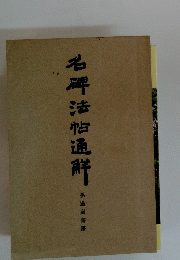 名碑法帖通解